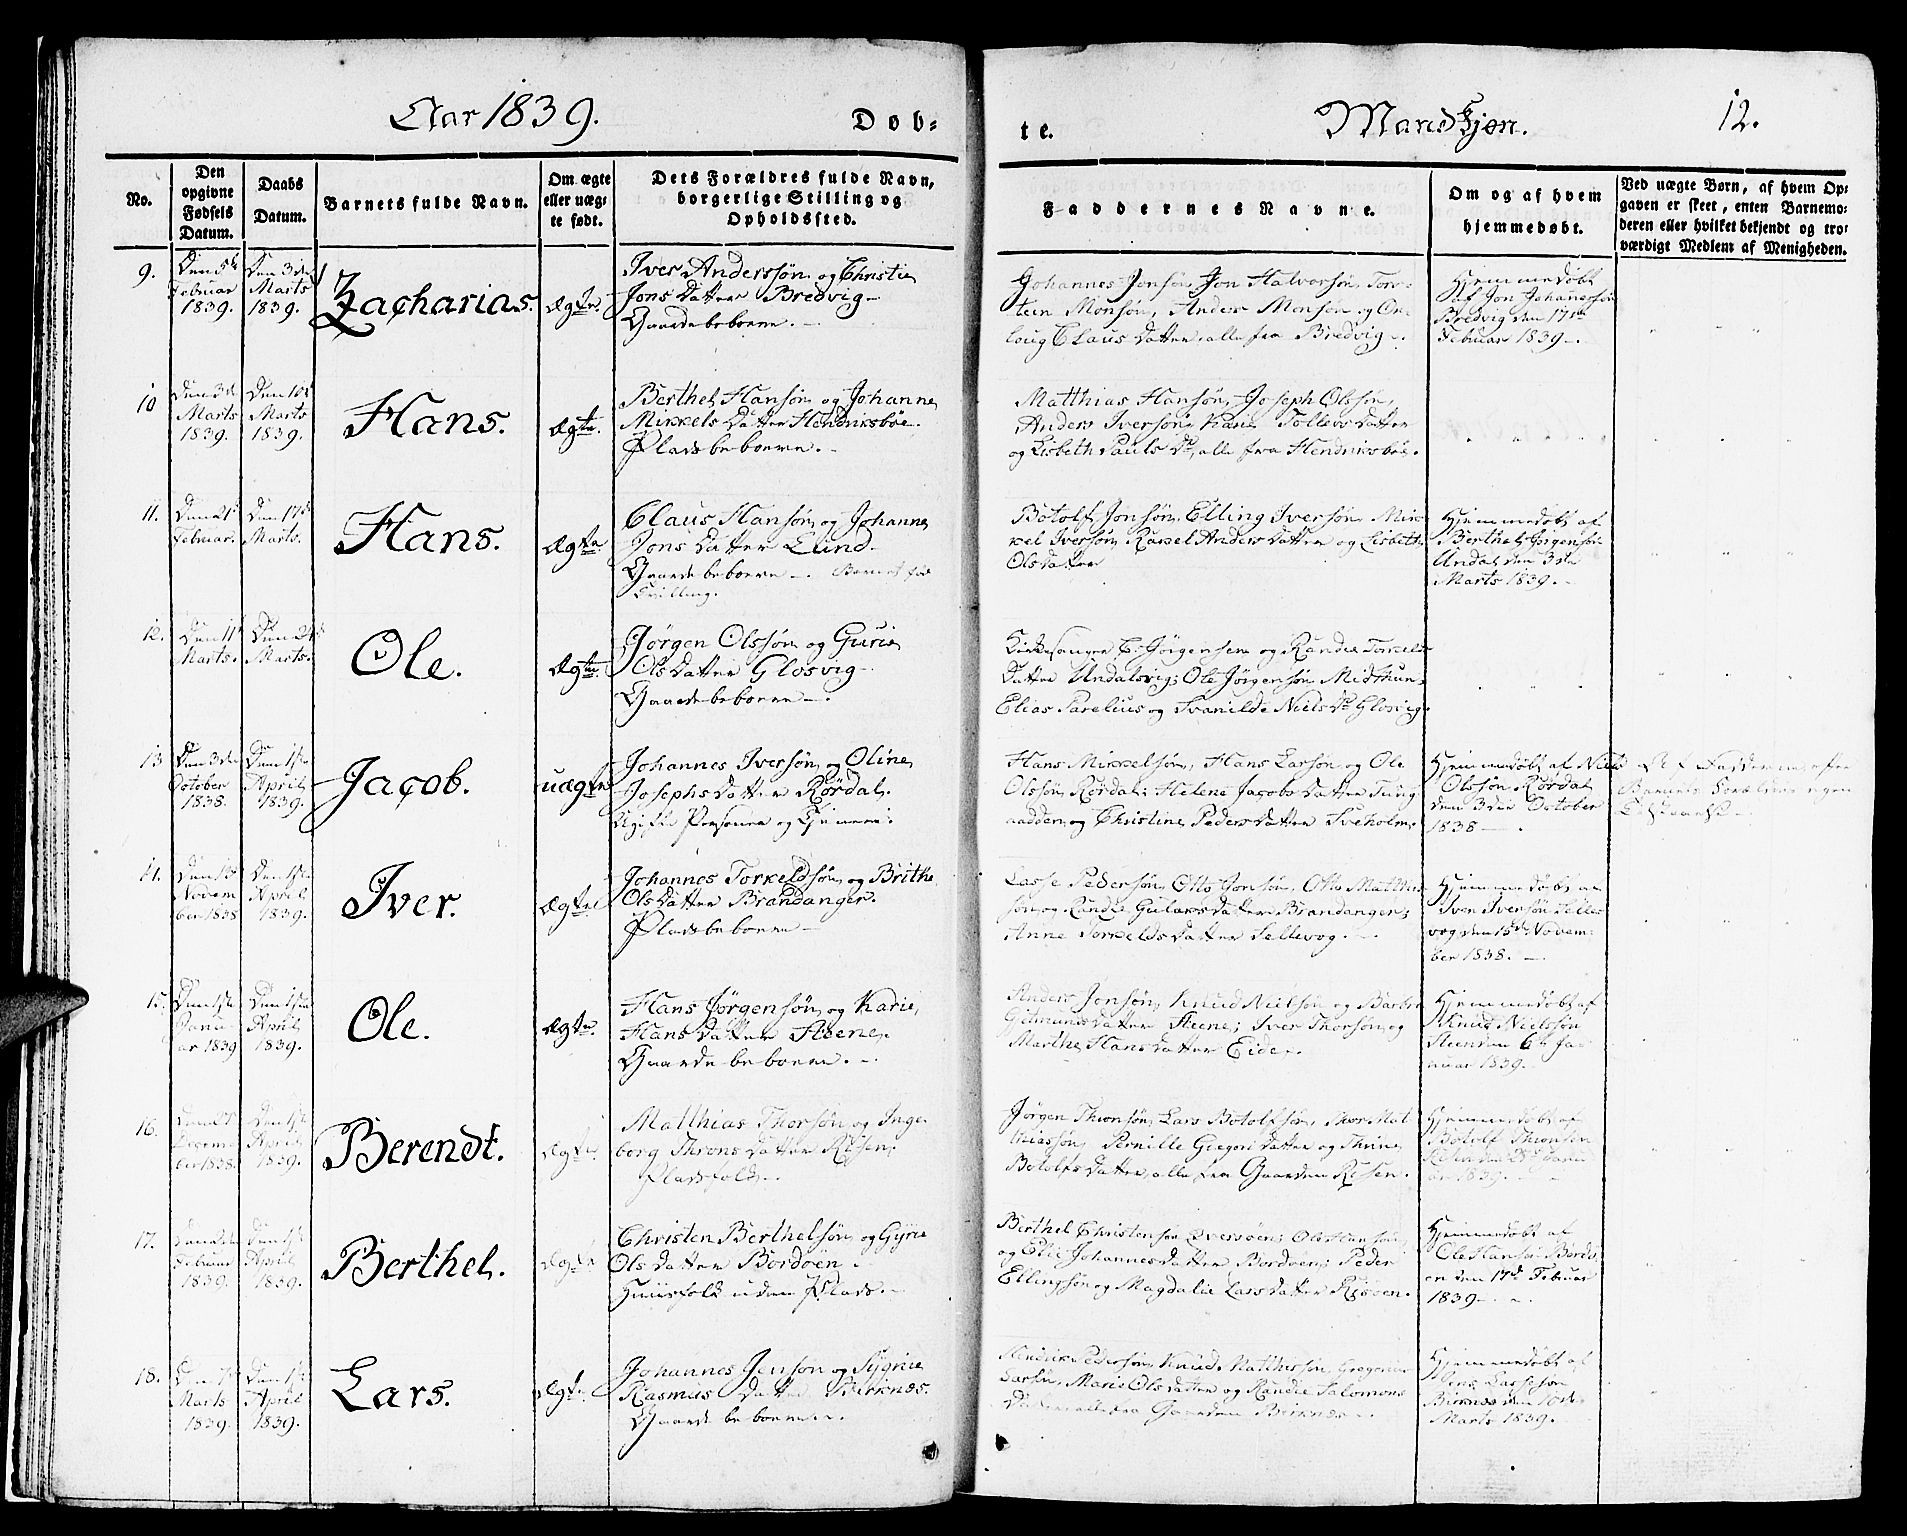 Aar 1839. Døb-
te. Mandkjøn. 12.
No.
Den opgivne Fødsels Datum.
Daabs Datum.
Barnets fulde Navn.
Om ægte eller uægte født.
Dets Forældres fulde Navn, borgerlige Stilling og Opholdssted.
Faddernes Navne.
Om og af hvem hjemmedøbt.
Ved uægte Børn, af hvem Opgaven er skeet, enten Barnemoderen eller hvilket bekjendt og troværdigt Medlem af Menigheden.
9.
Den 5te
Februar
1839.
Den 3die
Marts
1839.
Zacharias.
Ægte.
Iver Anderssøn og Christie
Jons Datter Bredvig
Gaardebeboere.
Johannes Jonsøn, Jon Halvorsøn, Tor-
stein Monsøn, Anders Monsøn og On-
laug Claus Datter alle fra Bredvig.
Hjemmedøbt
af Jon Johannessøn
Bredvig den 17de
Februar 1839.
10
Den 3die
Marts
1839.
Den 10de
Marts
1839.
Hans.
Ægte.
Berthel Hansøn og Johanne
Mikkels Datter Hendriksbøe
Pladsbeboere.
Matthias Hansøn, Joseph Olssøn,
Anders Iversøn, Karie Tollevs Datter
og Lisbeth Pauls Dr, alle fra Hendriksbøe.
11.
Den 21de
Februar.
Den 17de
Marts.
Hans.
Ægte
Claus Hansøn og Johanne
Jons Datter Lund.
Gaardebeboere. Barnet fød
Tvilling.
Botolf Jonsøn, Elling Iversøn, Mik-
kel Iversøn, Rakel Anders Datter og Lisbeth
Olsdatter
Hjemmedøbt af
Berthel Jørgensøn
Undal den 3die
Marts 1839.
12.
Den 11te
Marts.
Den 24de
Marts.
Ole.
Ægte.
Jørgen Olssøn og Gurie
Ols Datter Glosvig
Gaardebeboere.
Kirkesanger C. Jørgensen og Randie Torkels
Datter Undalsvig; Ole Jørgensøn Midthun
Elias Sarelius og Svanilde Niels Dr Glosvig.
13
Den 3die
October
1838.
Den 1ste
April
1839.
Jacob.
uægte
Johannes Iversøn og Oline
Josephs Datter Rørdal.
Ugifte Personer og
Hans Mikkelsøn, Hans Larsøn og Ole
Olssøn Rørdal; Helene Jacobs Datter Tung
aadden og Christine Peders Datter Sveholm.
Hjemmedøbt af Niels
Olssøn Rørdal
den 3die October
1838
Fadderne efter
Barnets Forældres egen
14.
Den 15de
Novem
ber 1838
Den 1ste
April
1839.
Iver.
Ægte
Johannes Torkeldsøn og Brithe
Ols Datter Brandanger.
Pladsbeboere
Lasse Pedersøn, Otto Jonsøn, Otto Matthis
søn og Randie Gulaks Datter Brandanger;
Anne Torkelds Datter Sellevog.
Hjemmedøbt af
Iver Iversøn Selle-
vog den 15de Novem-
ber 1838.
15.
Den 1ste
Janu-
ar 1839
Den 1ste
April
1839.
Ole.
Ægte.
Hans Jørgensøn og Karie
Hans Datter Steene.
Gaardebeboere.
Anders Jonsøn, Knud Nielsøn og Barbro
Gutmunds Datter Steene; Iver Thorsøn og
Marthe Hans Datter Eide.
Hjemmedøbt af
Knud Nielssøn
Steen den 6te Ja-
nuar 1839.
16.
Den 27de
Decem-
ber 1838.
Den 1ste
April
1839.
Berendt.
Ægte.
Matthias Thorsøn og Inge-
borg Throns Datter Risen
Pladsfolk.
Jørgen Thronsøn, Lars Botolfsøn, Thor Mat-
thiassøn, Pernille Gregori Datter og Thrine
Botolfs Datter, alle fra Gaarden Risen.
Hjemmedøbt af
Botolf Thronsøn
ar 1839.
17.
Februar
1839.
Den 1ste
April
1839.
Berthel.
Ægte
Christen Berthelsøn og Gyrie
Ols Datter Bordøen
Huusfolk uden Plads.
Berthel Christensøn Qversøen; Ole Hansøn
og Elie Johannes Datter Bordøen; Peder
Ellingsøn og Magdalie Lars Datter Risøen.
Hjemmedøbt af
Ole Hansøn Bordø-
en den 17de Februar
1839.
18.
Den 7de
Marts
1839.
Den 1ste
April
1839.
Lars.
Ægte.
Johannes Jensøn og Sygrie
Rasmus Datter Birknes.
Gaardebeboere.
Hendrik Pedersøn, Knud Matthissøn, Gregorius
Larsøn, Marie Olsdatter og Randie Salomons
Datter alle fra Gaarden Birknes.
Hjemmedøbt af
Jens Lassesøn
Birknes den 10de
Marts 1839.